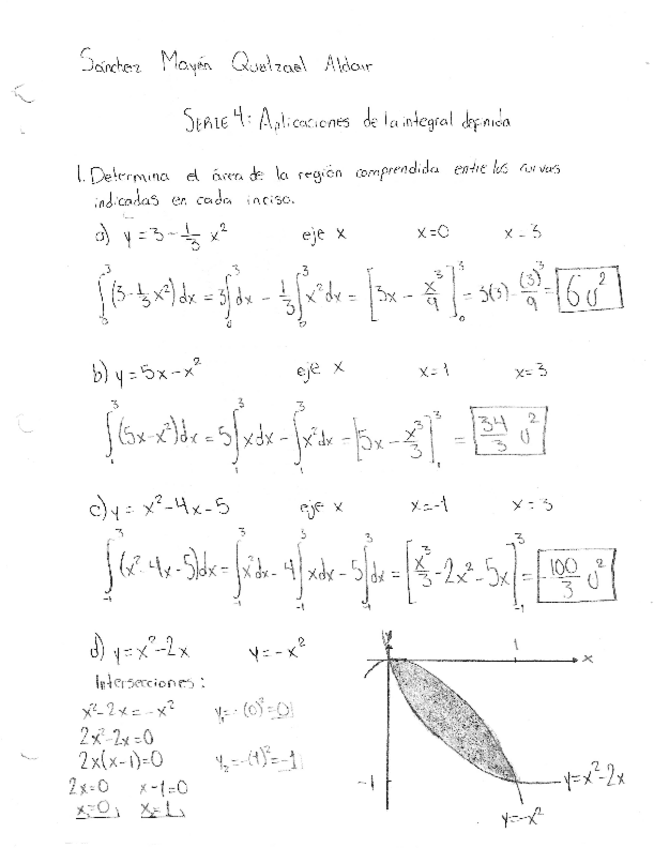 Sánchez Mayén Quetzael Aldair
SERIE 4: Aplicaciones de la integral definida
1. Determina el área de la región comprendida entre las curvas
indicadas en cada inciso.
a) y = 3 - 1/3 x² eje x x=0 x=3
∫₀³ (3 - 1/3 x²) dx = 3∫₀³ dx - 1/3 ∫₀³ x² dx = [3x - x³/9]₀³ = 3(3) - (3)³/9 = 6 u²
b) y = 5x - x² eje x x=1 x=3
∫₁³ (5x - x²) dx = 5∫₁³ x dx - ∫₁³ x² dx = [5x - x³/3]₁³ = 34/3 u²
c) y = x² - 4x - 5 eje x x=-1 x=3
∫₋₁³ (x² - 4x - 5) dx = ∫₋₁³ x² dx - 4∫₋₁³ x dx - 5∫₋₁³ dx = [x³/3 - 2x² - 5x]₋₁³ = 100/3 u²
d) y = x² - 2x y = -x²
Intersecciones:
x² - 2x = -x² y₁ = -(0)² = 0
2x² - 2x = 0
2x(x-1) = 0 y₂ = -(1)² = -1
2x=0 x-1=0
x=0 x₂=1
y
1
x
-1
y=x²-2x
y=-x²